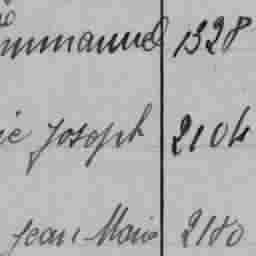 Emmanuel 1328
ie Joseph 2104
Jean Marie 2180